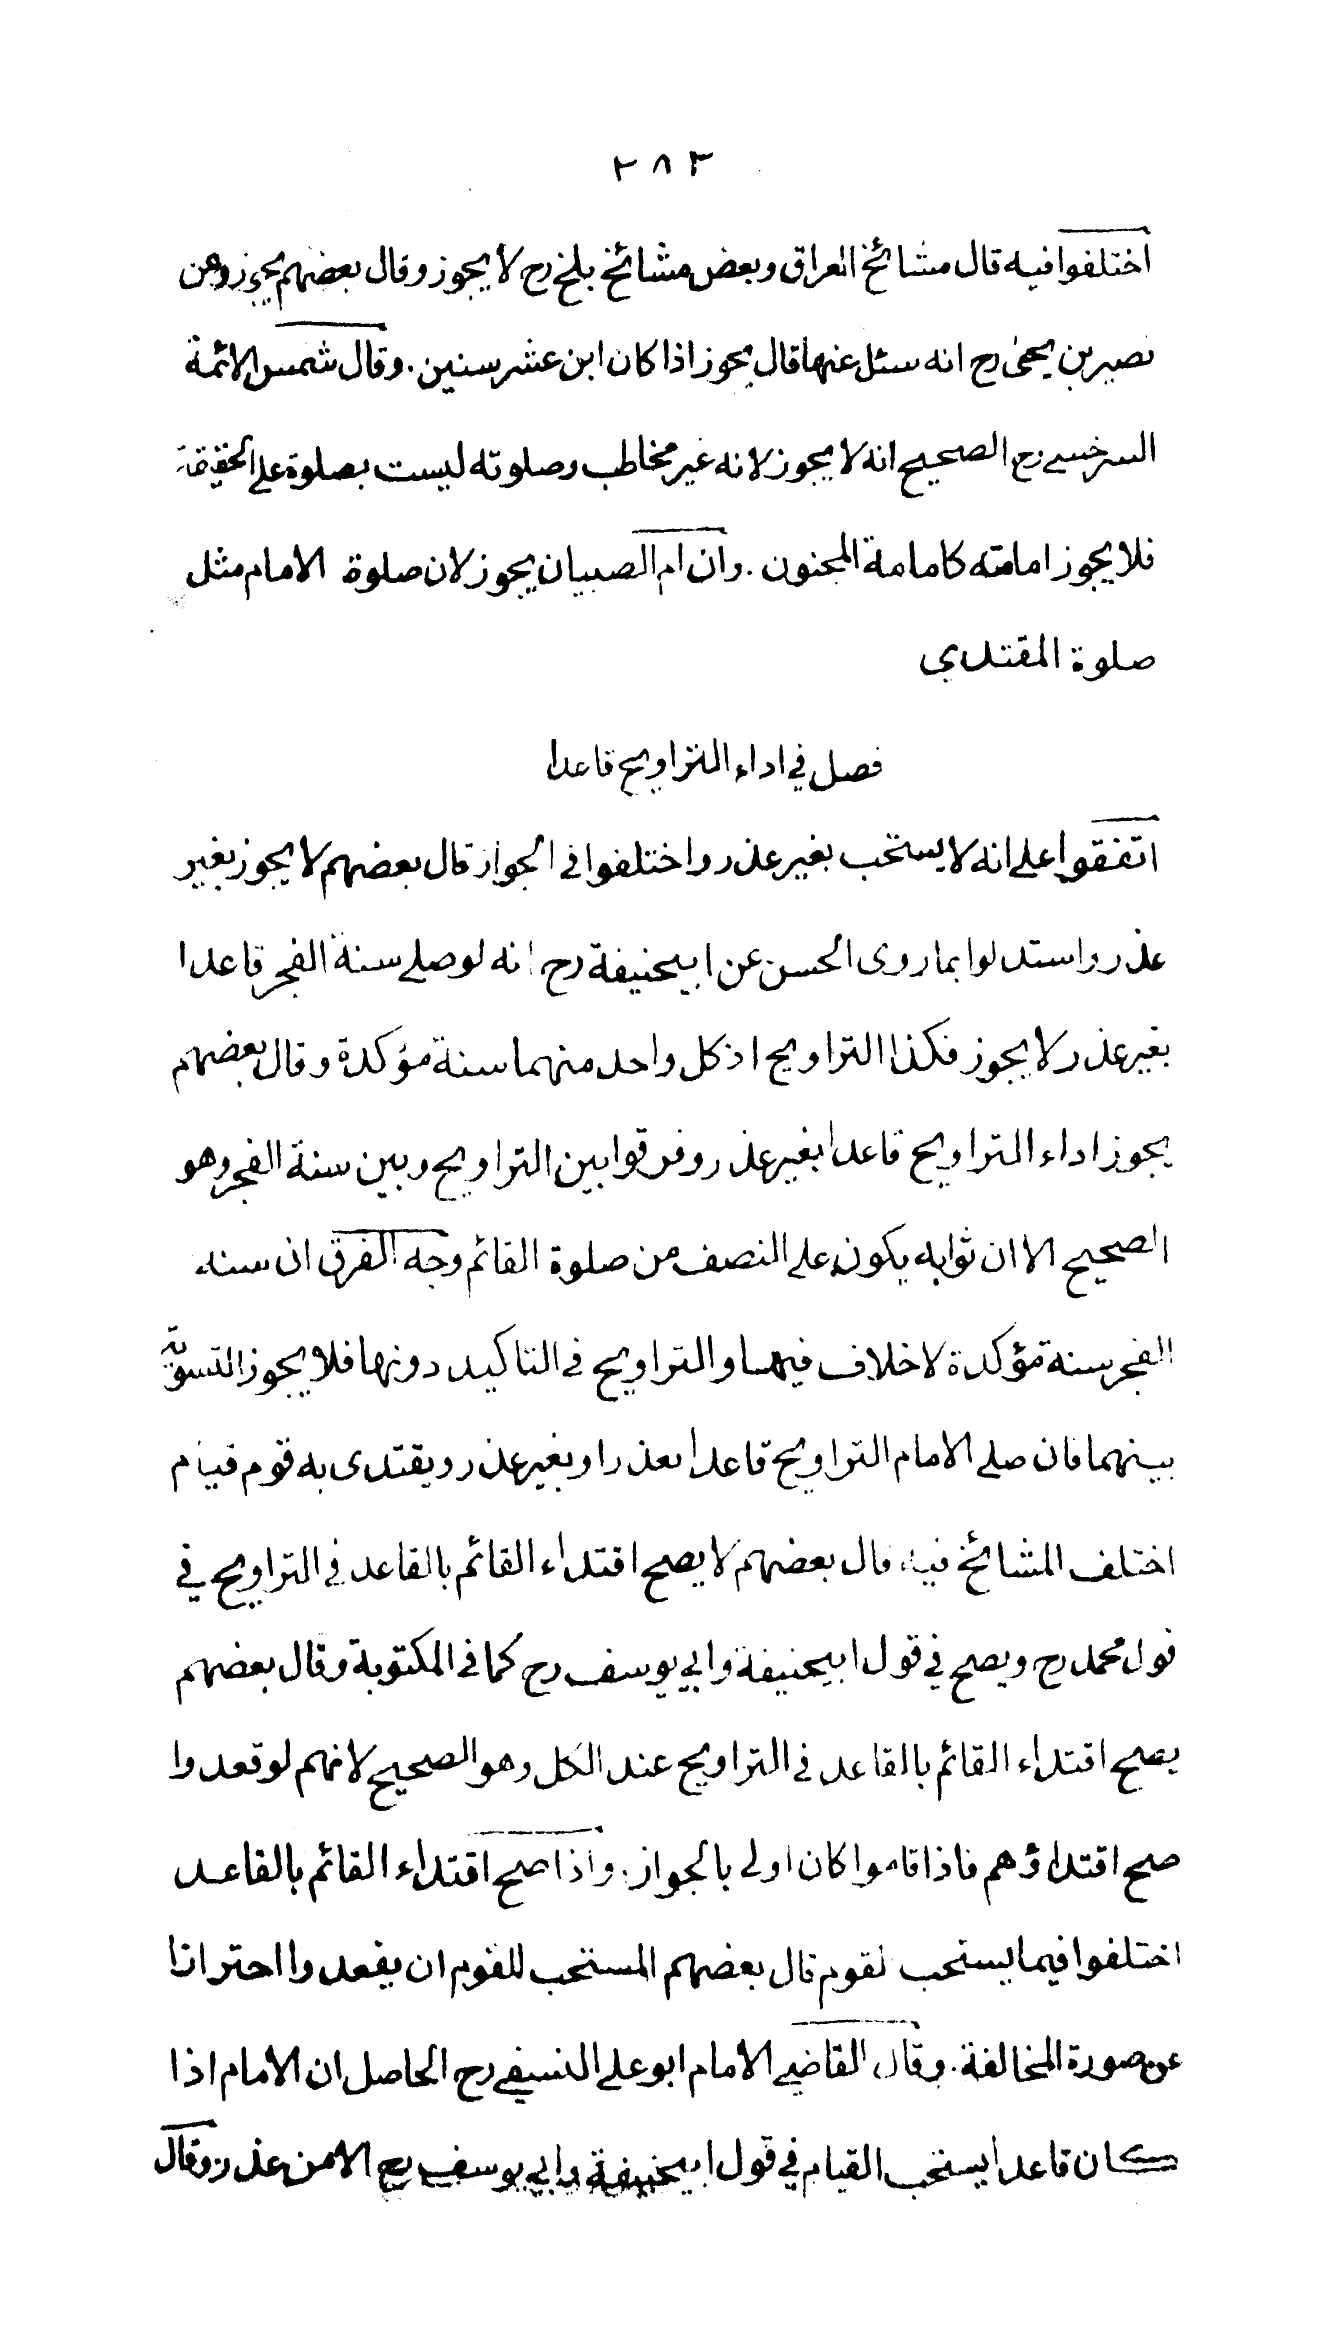 ٢٨٣
اختلفوا فيه قال مشائخ العراق وبعض مشائخ بلخ رح لا يجوز وقال بعضهم يجوز وعن
نصير بن يحيى رح انه سئل عنها قال يجوز اذا كان ابن عشر سنين. وقال شمس الائمة
السرخسي رح الصحيح انه لا يجوز لانه غير مخاطب وصلوته ليست بصلوة على الحقيقة
فلا يجوز امامته كامامة المجنون. وان ام الصبيان يجوز لان صلوة الامام مثل
صلوة المقتدي
فصل في اداء التراويح قاعدا
اتفقوا على انه لا يستحب بغير عذر واختلفوا فى الجواز قال بعضهم لا يجوز بغير
عذر واستدلوا بما روى الحسن عن ابيحنيفة رح انه لو صلى سنة الفجر قاعدا
بغير عذر لا يجوز فكذا التراويح اذ كل واحد منهما سنة مؤكدة وقال بعضهم
يجوز اداء التراويح قاعدا بغير عذر وفرقوا بين التراويح وبين سنة الفجر وهو
الصحيح الا ان ثوابه يكون على النصف من صلوة القائم وجه الفرق ان سنة
الفجر سنة مؤكدة لا خلاف فيها والتراويح فى التاكيد دونها فلا يجوز التسوية
بينهما فان صلى الامام التراويح قاعدا بعذر او بغير عذر ويقتدى به قوم قيام
اختلف المشائخ فيه قال بعضهم لا يصح اقتداء القائم بالقاعد في التراويح في
قول محمد رح ويصح في قول ابيحنيفة وابي يوسف رح كما في المكتوبة وقال بعضهم
يصح اقتداء القائم بالقاعد في التراويح عند الكل وهو الصحيح لانهم لو قعدوا
صح اقتداؤهم فاذا قاموا كان اولى بالجواز. واذا صح اقتداء القائم بالقاعد
اختلفوا فيما يستحب للقوم قال بعضهم المستحب للقوم ان يقعدوا احترازا
عن صورة المخالفة. وقال القاضي الامام ابو على النسفي رح الحاصل ان الامام اذا
كان قاعدا يستحب القيام في قول ابيحنيفة وابي يوسف رح الا من عذر وقال